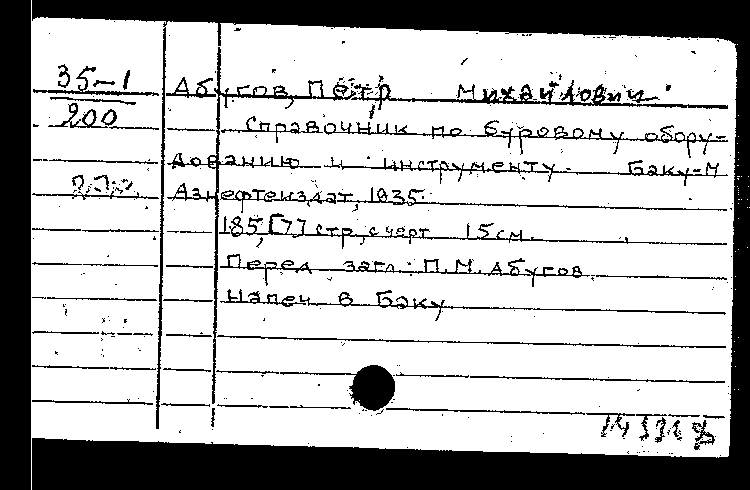 35-1
200
Абугов, Петр Михайлович
Справочник по буровому обору-
дованию и инструменту. Баку-М
Азнефтеиздат, 1935.
185, [7] стр, с черт 15 см.
Перед загл: П.М. Абугов
Напеч в Баку